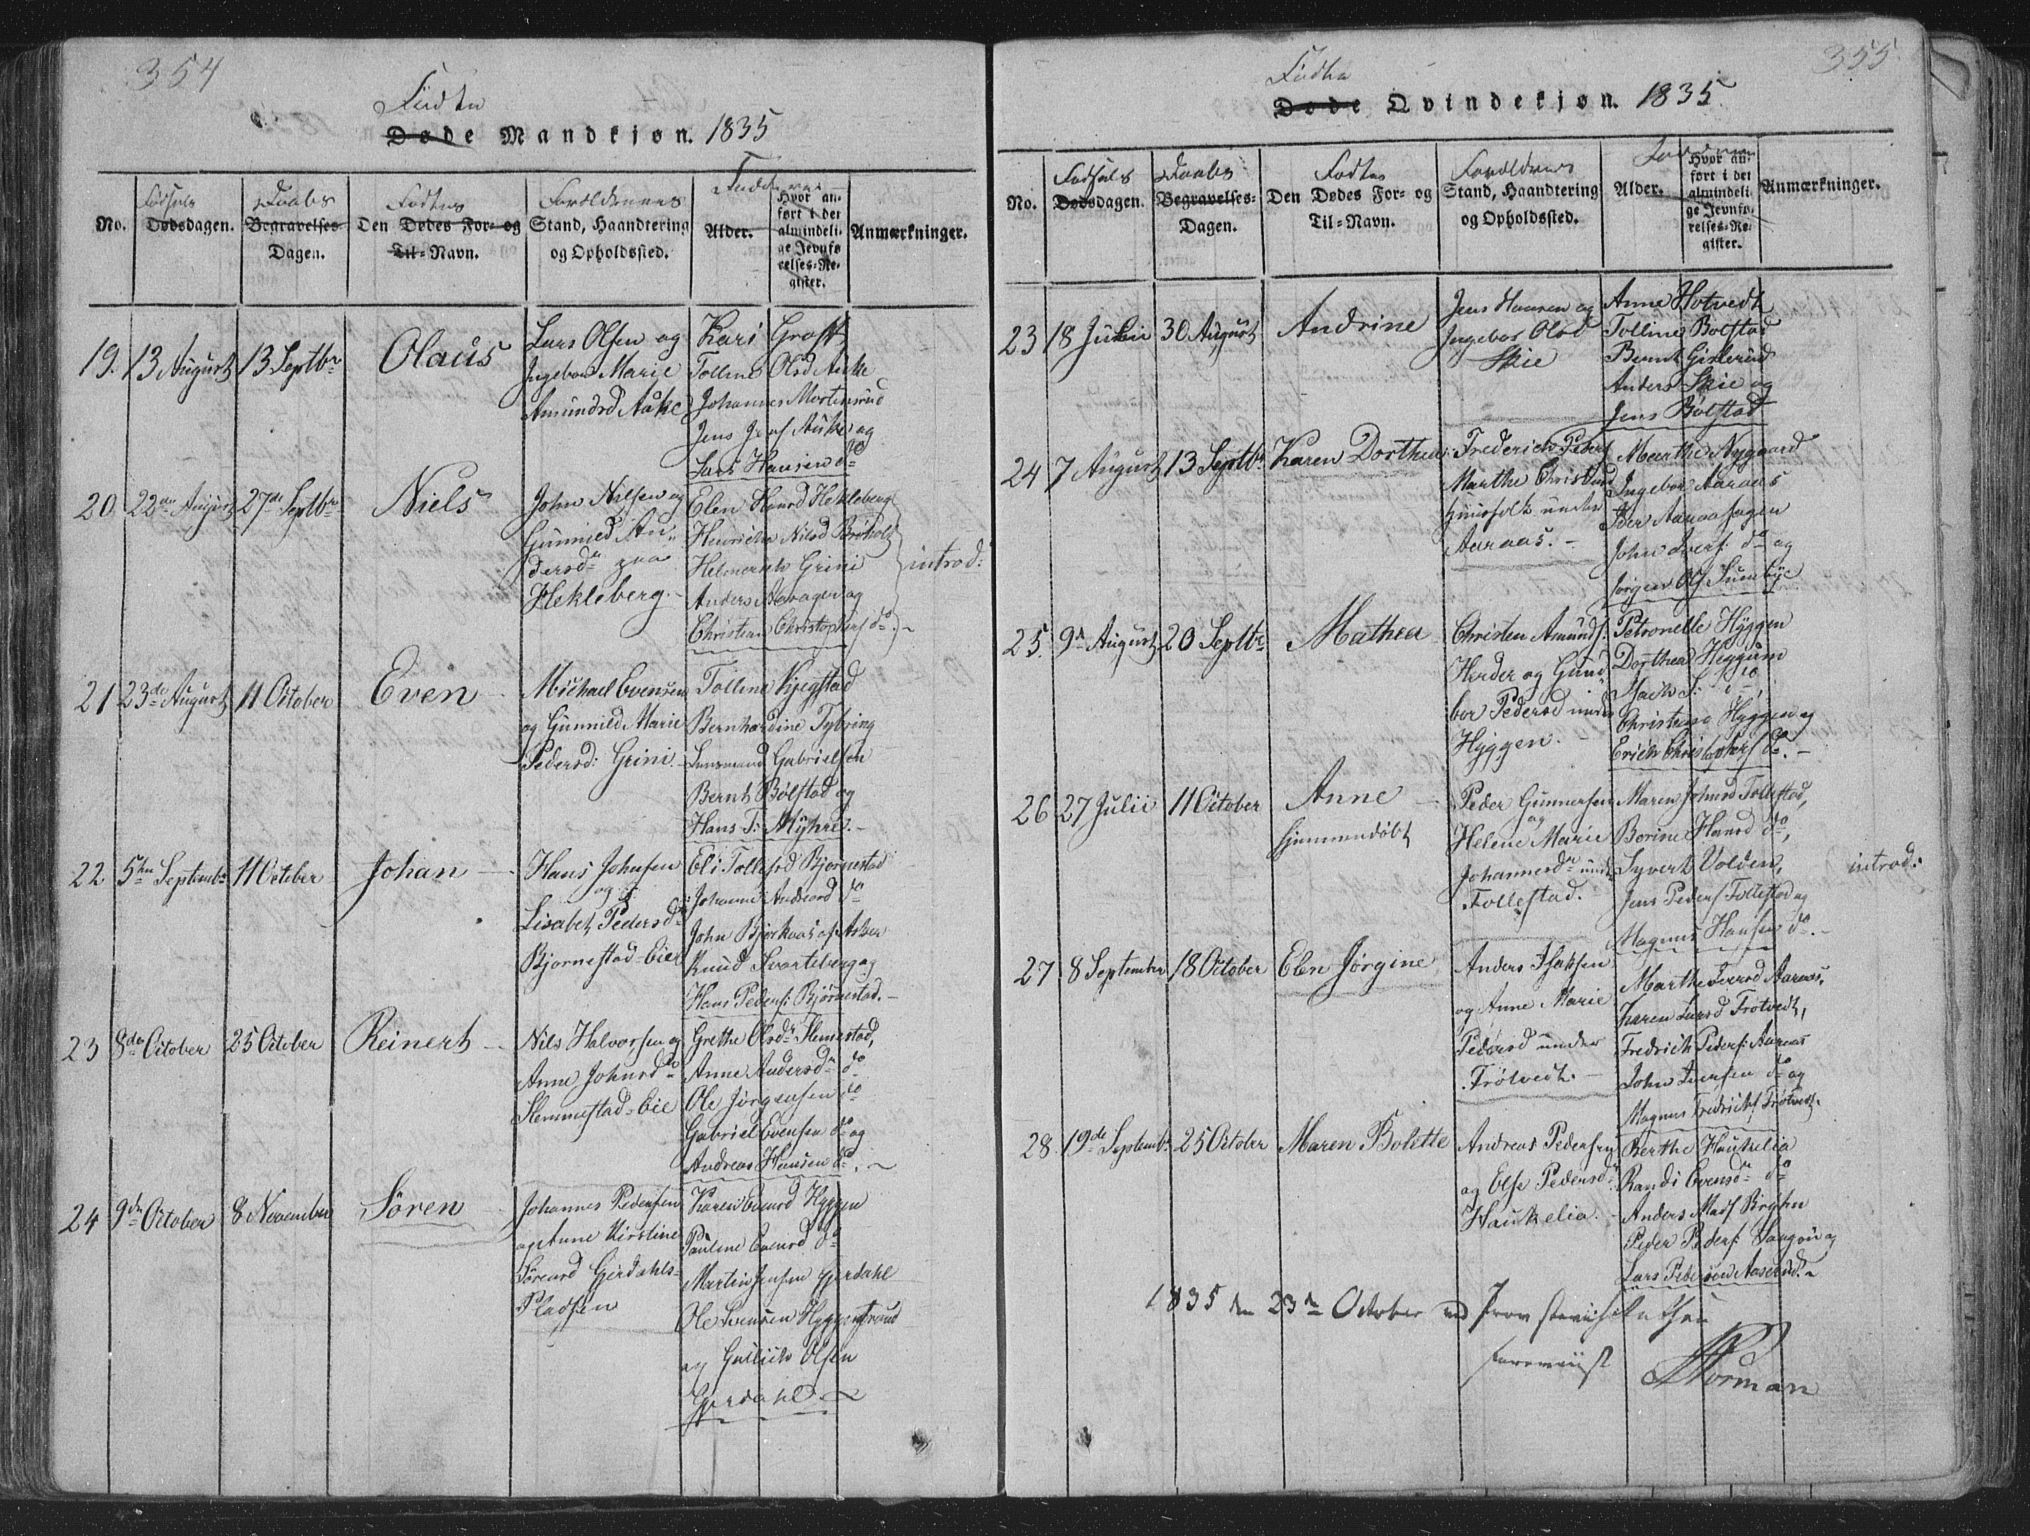 354
Fødte
Døde Mandkjøn. 1835
No.
Fødsels
Dødsdagen.
Daabs
Begravelses-
Dagen.
Fødtes
Den Dødes For- og
Til-Navn.
Forældrenes
Stand, Haandtering
og Opholdssted.
Fadderne
Alder.
Hvor an-
ført i det
almindeli-
ge Jevnfø-
relses-Re-
gister.
Anmærkninger.
19. 13 August 13 Septbr Olaus
Lars Olsen og
Ingebor Marie
Amundsd Aüke
Kari Graff
Tolline Olsd Aüke
Johannes Mortensrud
Jens Graf Aüke og
Lars Hansen do
20. 22de August 27de Septbr Niels
John Nilsen og
Gunnild An-
dersdr paa
Hekleberg.
Elen Hansd Hekleberg
Henricke Nilsd Brøholt
Helmersen Grini
Anders Aavagen og
Christian Christophers do.
introd:
21 23de August 11 October Even
Michael Evensen
og Gunnild Marie
Pedersd: Grini
Tolline Kjegstad
Bernhardine Tybring
Lensmand Gabrielsen
Bernt Bølstad og
Hans T: Myhre.
22 5te Septembr 11 October Johan
Hans Johnsen
og
Lisabet Pedersdr
Bjornestad-Eie
Eli Tollefsd Bjornestad
Johanne Andersd do
John Bjerkaas af Asker
Knud Svarteberg og
Hans Peders: Bjørnestad.
23 8de October 25 October Reinert
Nils Halvorsen og
Anne Johnsdr
Slemmestad-Eie
Grethe Olsdr Slemestad,
Anne Andersdr do
Ole Jørgensen do
Gabriel Evensen do og
Andreas Hansen do.
24 9de October 8 November Søren
Johannes Pedersen
og Anne Kirstine
Sörensd Gjerdahls-
Pladsen
Karen Evensd Hyggen
Pauline Evensd do
Martin Jensen Gjerdahl
Ole Svensen Hyggenstrand
og Gulbich Olsen
Gjerdahl.
355
Fødte
Døde Qvindekjøn. 1835.
No.
Fødsels
Dødsdagen.
Daabs
Begravelses-
Dagen.
Fødtes
Den Dødes For- og
Til-Navn.
Forældrenes
Stand, Haandtering
og Opholdssted.
Fadderne
Alder.
Hvor an-
ført i det
almindeli-
ge Jevnfø-
relses-Re-
gister.
Anmærkninger.
23 18 Julii 30 August Andrine
Jens Hansen og
Ingebor Olsd
Skie
Anne Hotvedt
Tolline Bolstad
Bernt Gislerud
Anders Skie og
Jens Bølstad
24 7 August 13 Septbr Karen Dorthea
Frederich Peders
Marthe Christensd
Huusfolk under
Aaraas.
Marthe Nygaard
Ingebor Aaraas
Iver Aaraashagen
John Ivers: do og
Jørgen Ols Suenbye
25. 9de August 20 Septbr Mathea
Christen Amunds:
Herder og Gund-
bor Pedersd under
Hyggen.
Petronelle Hyggen
Dorthea Heggum
Isach S: do
Christense Hyggen og
Erich Christophers do.
26 27 Julii 11 October Anne
hjemmedøbt
Peder Gunnersen
og
Helene Marie
Johannesdr under
Tollestad.
Maren Johnsd Tollestad,
Borine Hansd do,
Syvert Volden,
Jens Peders Tollestad og
Magnus Hansen do.
introd:
27 8 September 18 October Elen Jørgine
Anders Isaksen
og Anne Marie
Pedersd under
Trøtvedt.
Marthe Iversd Aaraas,
Karen Larsd Trøtvedt,
Fredrich Peders: Aaraas
John Iversen do og
Magnus Fredrichs Trøtvedt.
28 19de Septembr 25 October Maren Bolette
Andreas Pedersen
og Else Pedersdr
Haukelia.
Berthe Haukelia
Randi Evensdr do
Anders Mads Bryhn
Peder Peders: Vangen og
Lars Pedersen Aaserud.
1835 den 23de October ved Provstevisitatsen
foreviist
Norman